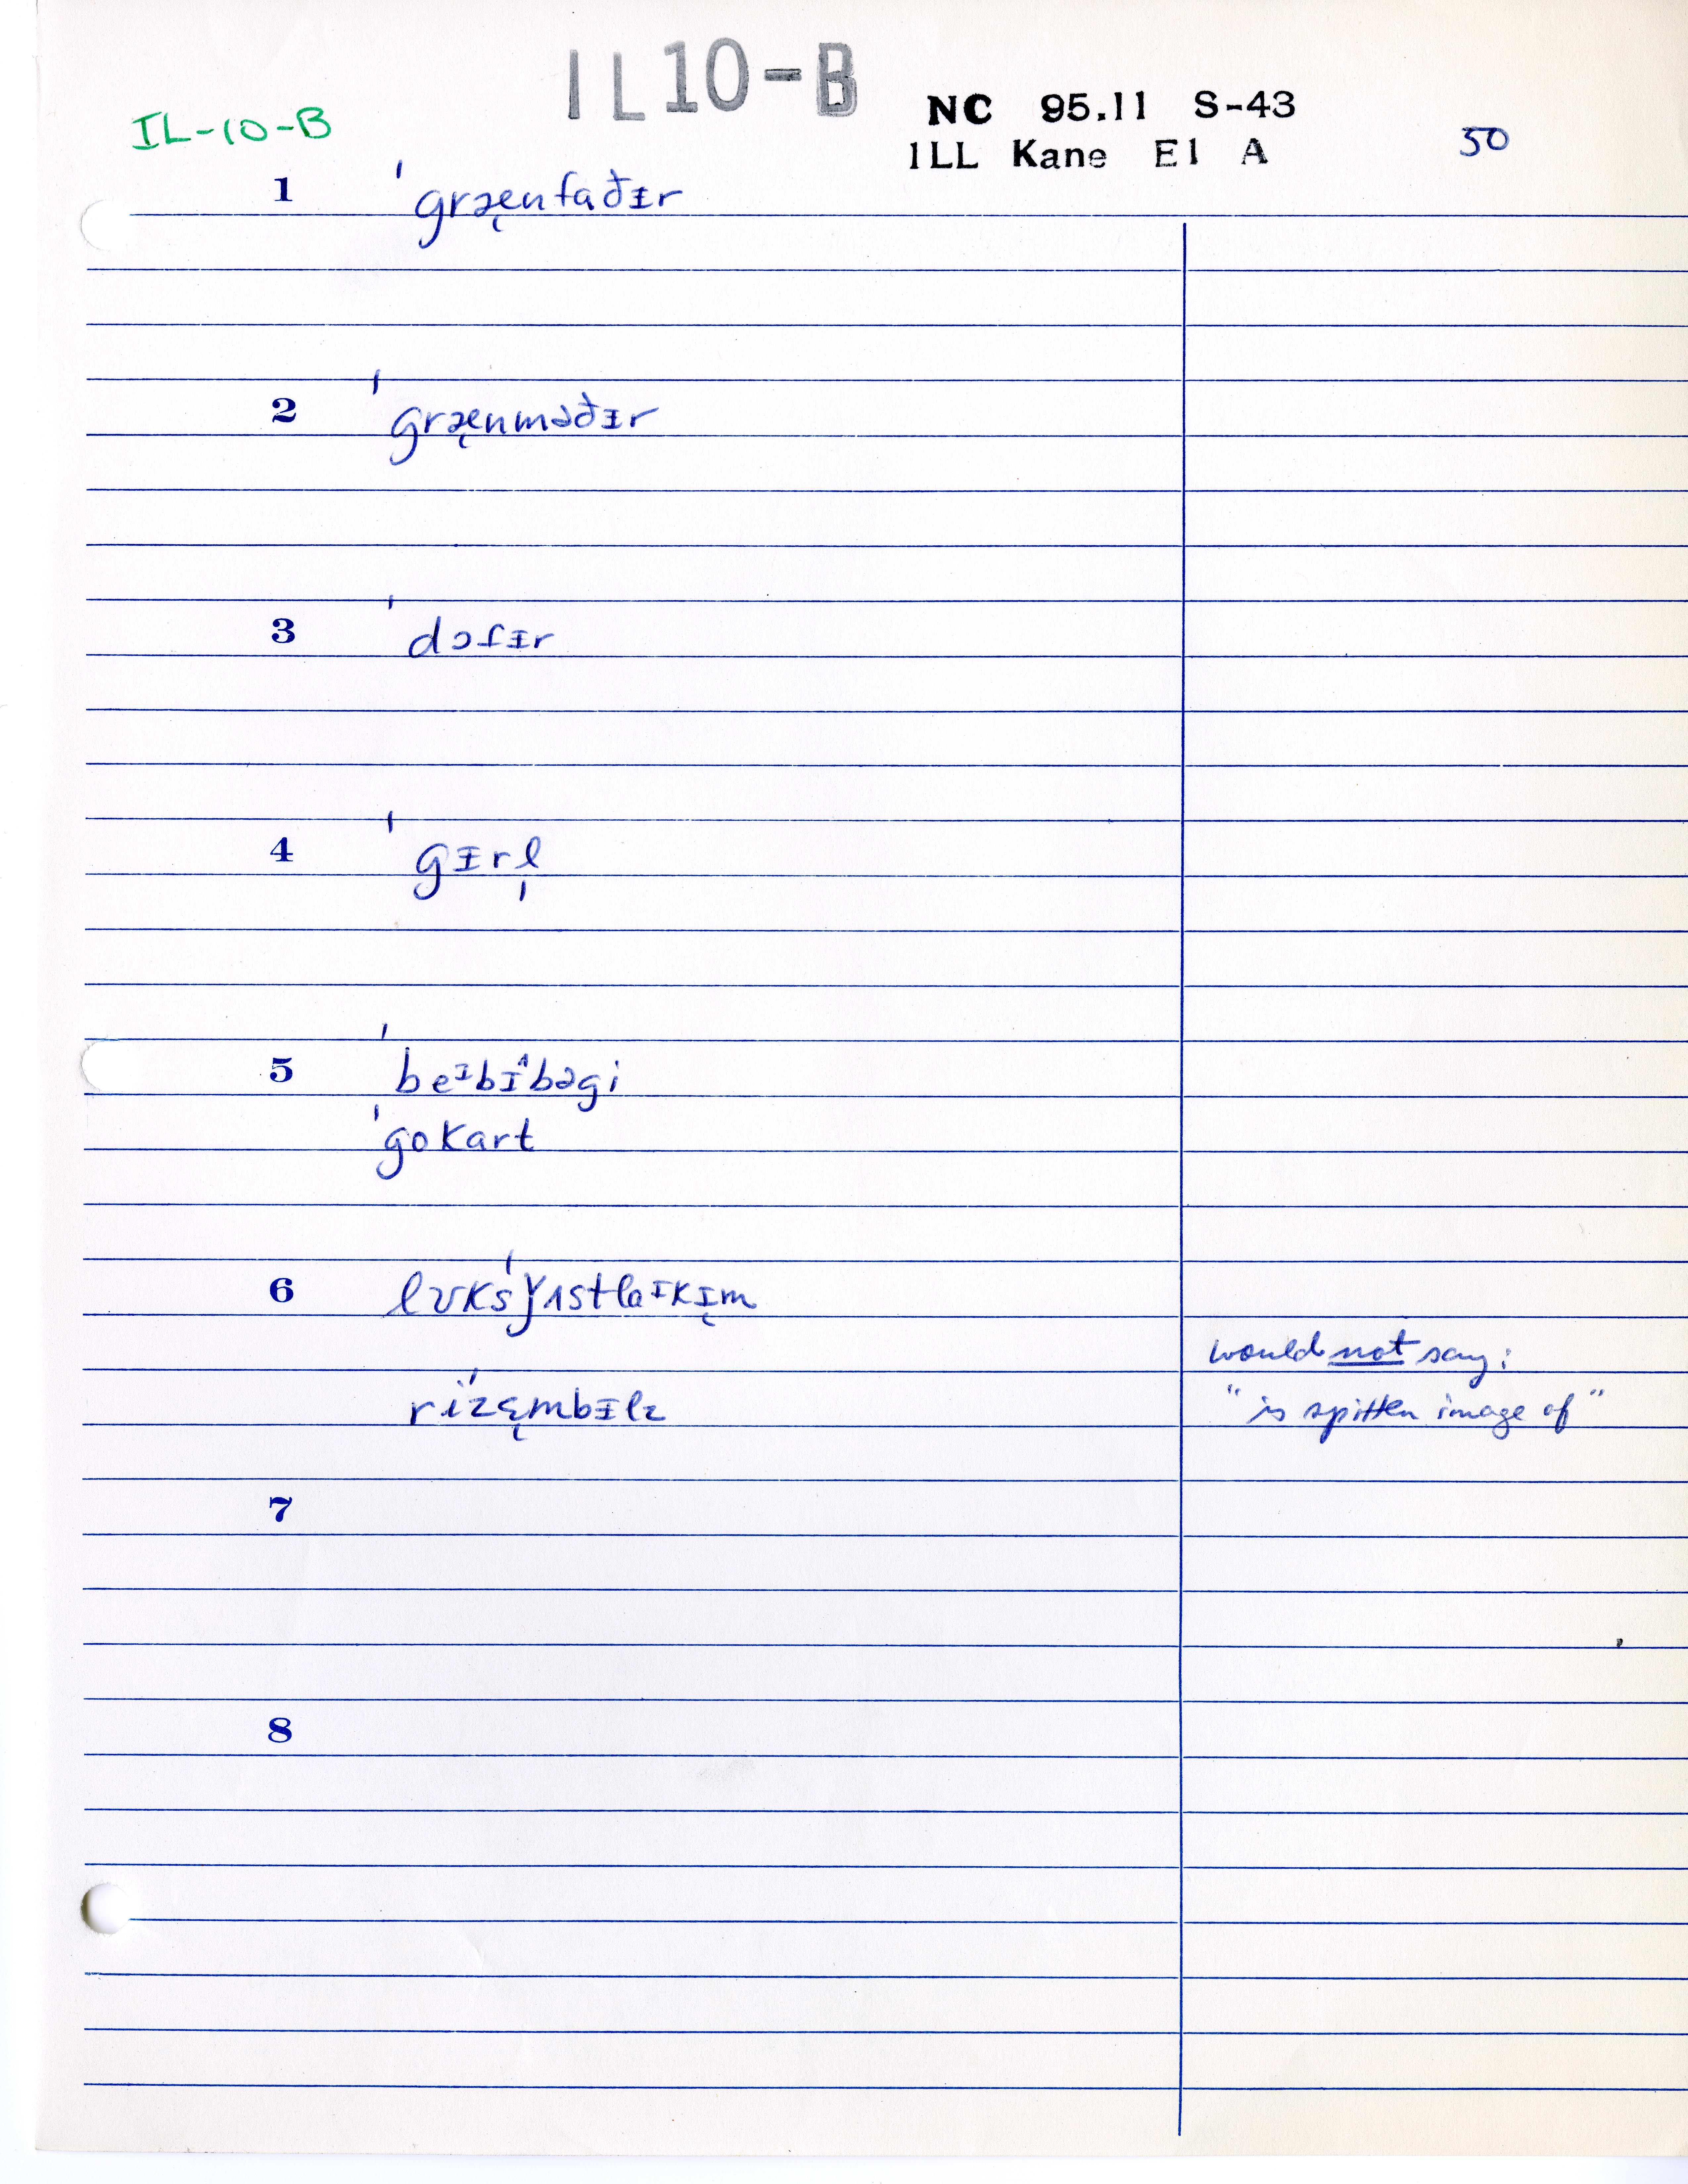 IL10-B
IL-10-B
NC 95.11 S-43
ILL Kane E1 A
50
1 ˈgræ̨nfaðɪ̵r
2 ˈgræ̨nməðɪ̵r
3 ˈdɔtɪ̵̬r
4 ˈgɪ̵rl̩
5 ˈbeᶦbɪ̂bəgi
ˈgokart
6 lʊksˈǰɪstlaᶦkɪ̨m
would not say:
riˈzę̈mbɪ̵lz
"is spitten image of"
7
8